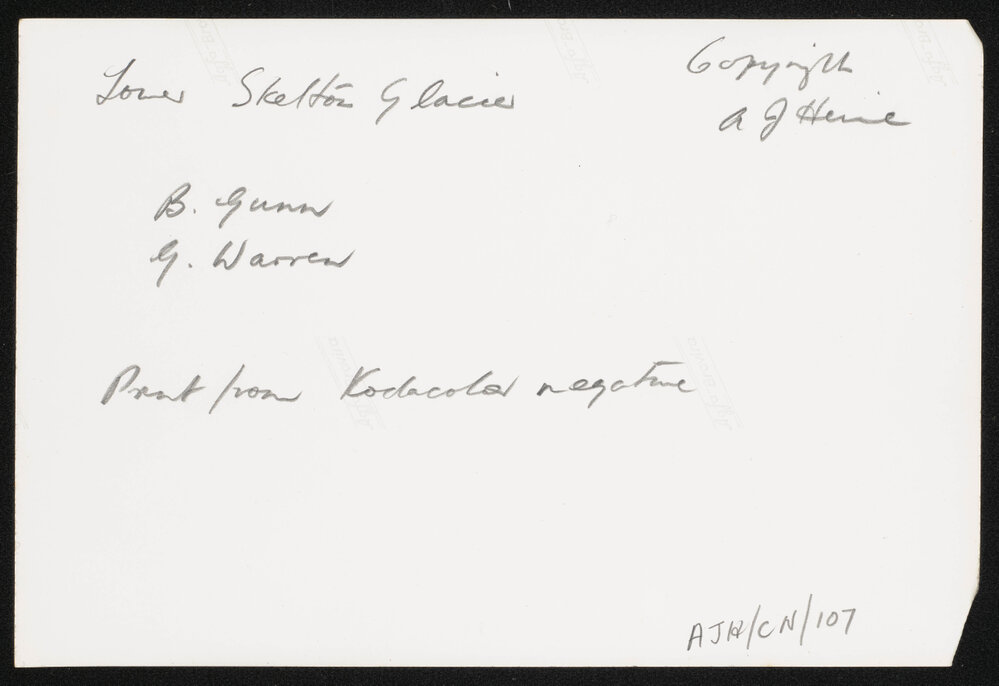 Lower Skelton Glacier
Copyright
A J Heine
B. Gunn
G. Warren
Print from Kodacolor negative
AJH/CN/107